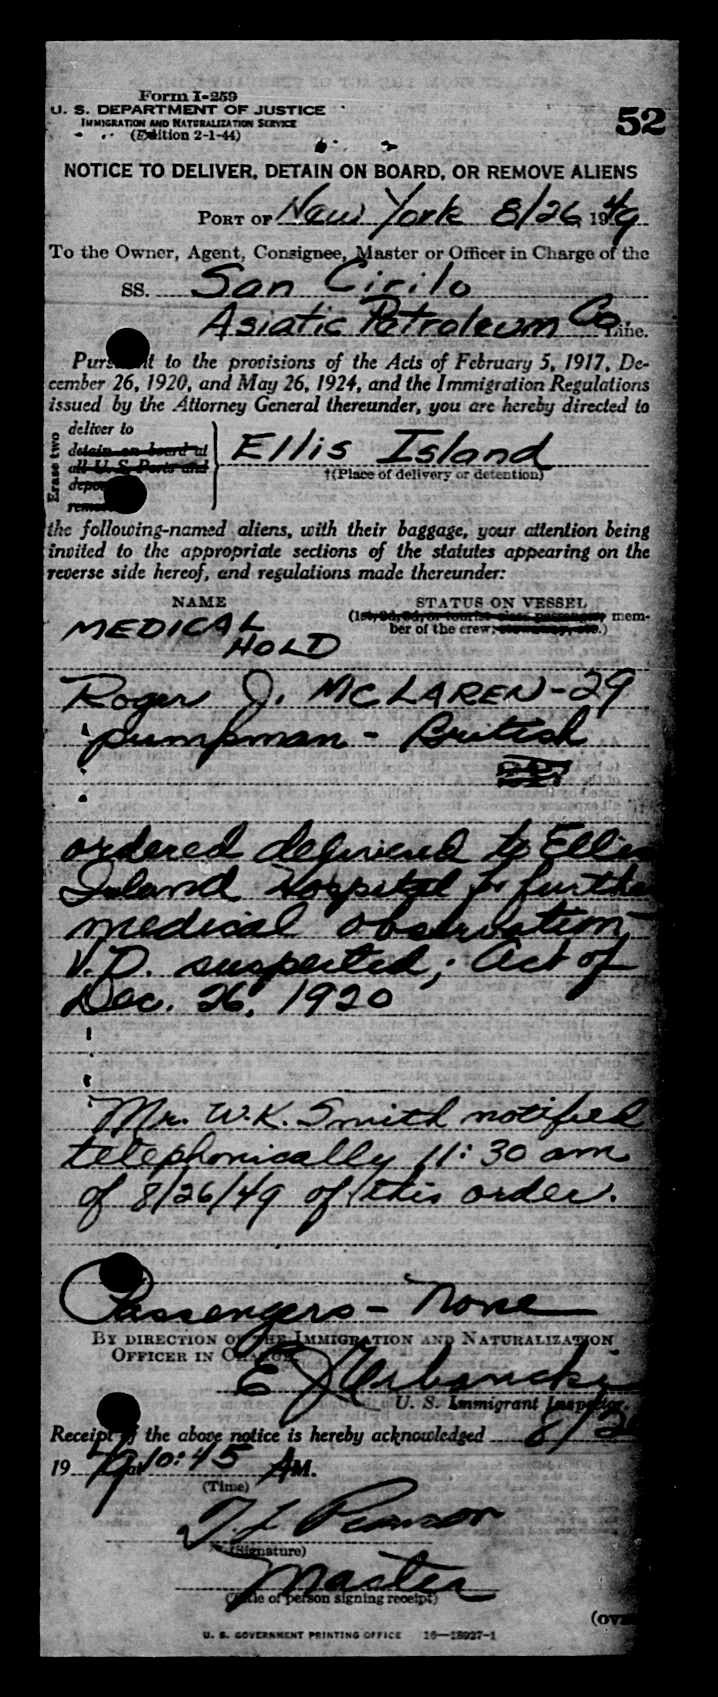 Form I-259
U. S. DEPARTMENT OF JUSTICE
IMMIGRATION AND NATURALIZATION SERVICE
(Edition 2-1-44)
52
NOTICE TO DELIVER, DETAIN ON BOARD, OR REMOVE ALIENS
PORT OF New York 8/26, 1949
To the Owner, Agent, Consignee, Master or Officer in Charge of the
SS. San Cirilo
Asiatic Petroleum Co. Line.
Pursuant to the provisions of the Acts of February 5, 1917, De-
cember 26, 1920, and May 26, 1924, and the Immigration Regulations
issued by the Attorney General thereunder, you are hereby directed to
Erase two
deliver to
detain on board at
all U. S. Ports and
Ellis Island
†(Place of delivery or detention)
the following-named aliens, with their baggage, your attention being
invited to the appropriate sections of the statutes appearing on the
reverse side hereof, and regulations made thereunder:
NAME STATUS ON VESSEL
(1st, 2d, 3d, or tourist class passenger, mem-
ber of the crew, stowaway, etc.)
MEDICAL
HOLD
Roger J. McLAREN - 29
pumpman - British
ordered delivered to Ellis
Island Hospital for further
medical observation,
V.D. suspected; Act of
Dec. 26, 1920
Mr. W.K. Smith notified
telephonically 11:30 am
of 8/26/49 of this order.
Passengers - None
BY DIRECTION OF THE IMMIGRATION AND NATURALIZATION
OFFICER IN CHARGE
E J Urbanski
U. S. Immigrant Inspector.
Receipt of the above notice is hereby acknowledged 8/26
1949 at 10:45 AM.
(Time)
(Signature)
Master
(Title of person signing receipt)
U. S. GOVERNMENT PRINTING OFFICE 16—18927-1